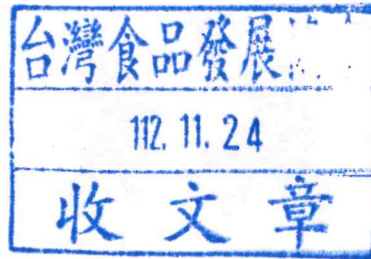 台灣食品發展
112. 11. 24
收文章